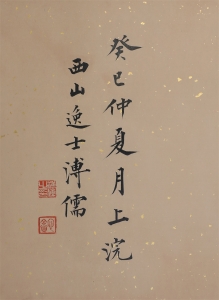 癸巳仲夏月上浣
西山逸士溥儒